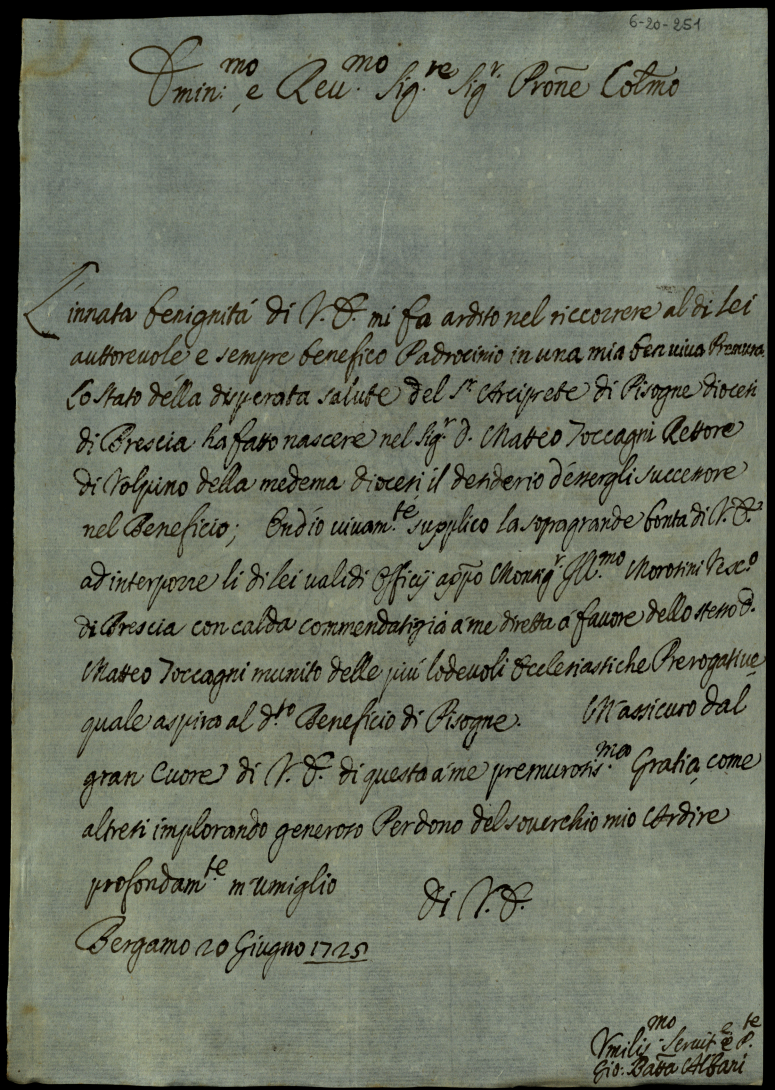 6-20-251
Emin.mo e Reu.mo Sig.re Sig.r Prone Colmo
L'innata benignitá di V. E. mi fa ardito nel riccorrere al di lei
auttoreuole e sempre benefico Padrocinio in una mia ben viva Premura.
Lo Stato della disperata salute del S.r Arciprete di Pisogne diocesi
di Brescia ha fatto nascere nel Sig.r D. Matteo Toccagni Rettore
di Volpino della medema diocesi il desiderio d'essergli successore
nel Beneficio; Ond'io vivam.te supplico la sopragrande bonta di V. E.
ad interporre li di lei validi Officij app̃o Monsig.r Ill.mo Morosini Vesc.o
di Brescia con calda commendatizia á me diretta á fauore dello stesso D.
Matteo Toccagni munito delle piú lodevoli Ecclesiastiche Prerogative
quale aspira al d.to Beneficio di Pisogne. M'assicuro dal
gran Cuore di V. E. di questa á me premurosis.ma Gratia, come
altresi implorando generoso Perdono del souerchio mio Ardire
profondam.te m'umiglio
di V. E.
Bergamo 20 Giugno 1725
Vmilis.mo Seruit.e P.te
Gio: Batta Albari